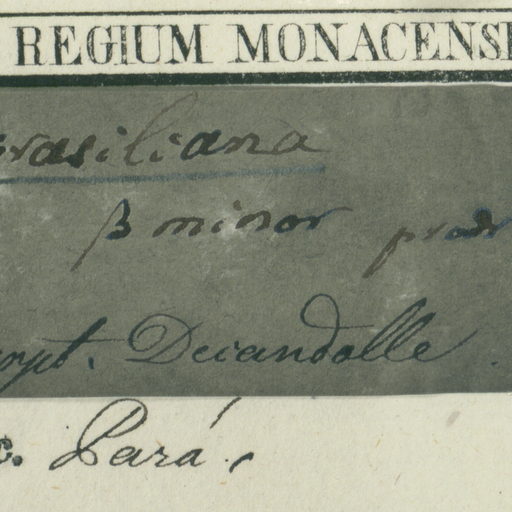 REGIUM MONACENS
rasiliana
β minor prodr
ript. Decandolle.
c. Pará.